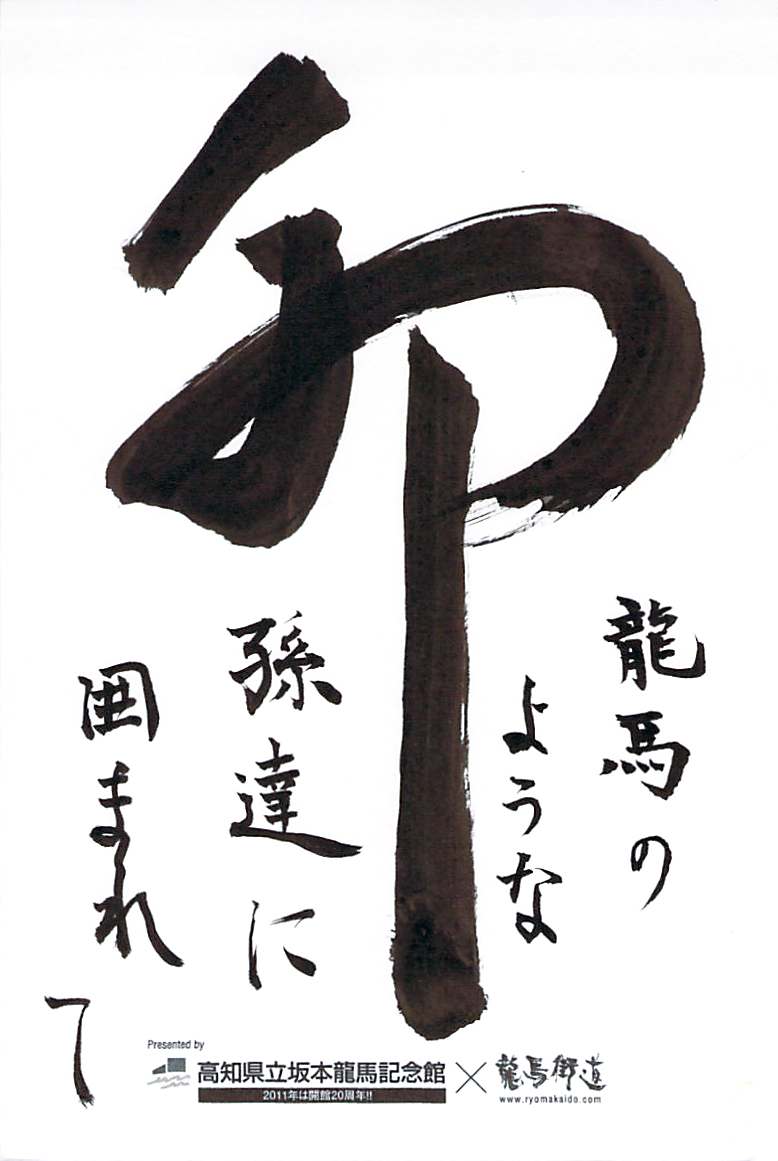 卯
龍馬の
ような
孫達に
囲まれ
て
Presented by
高知県立坂本龍馬記念館
2011年は開館20周年!!
×
龍馬街道
www.ryomakaido.com